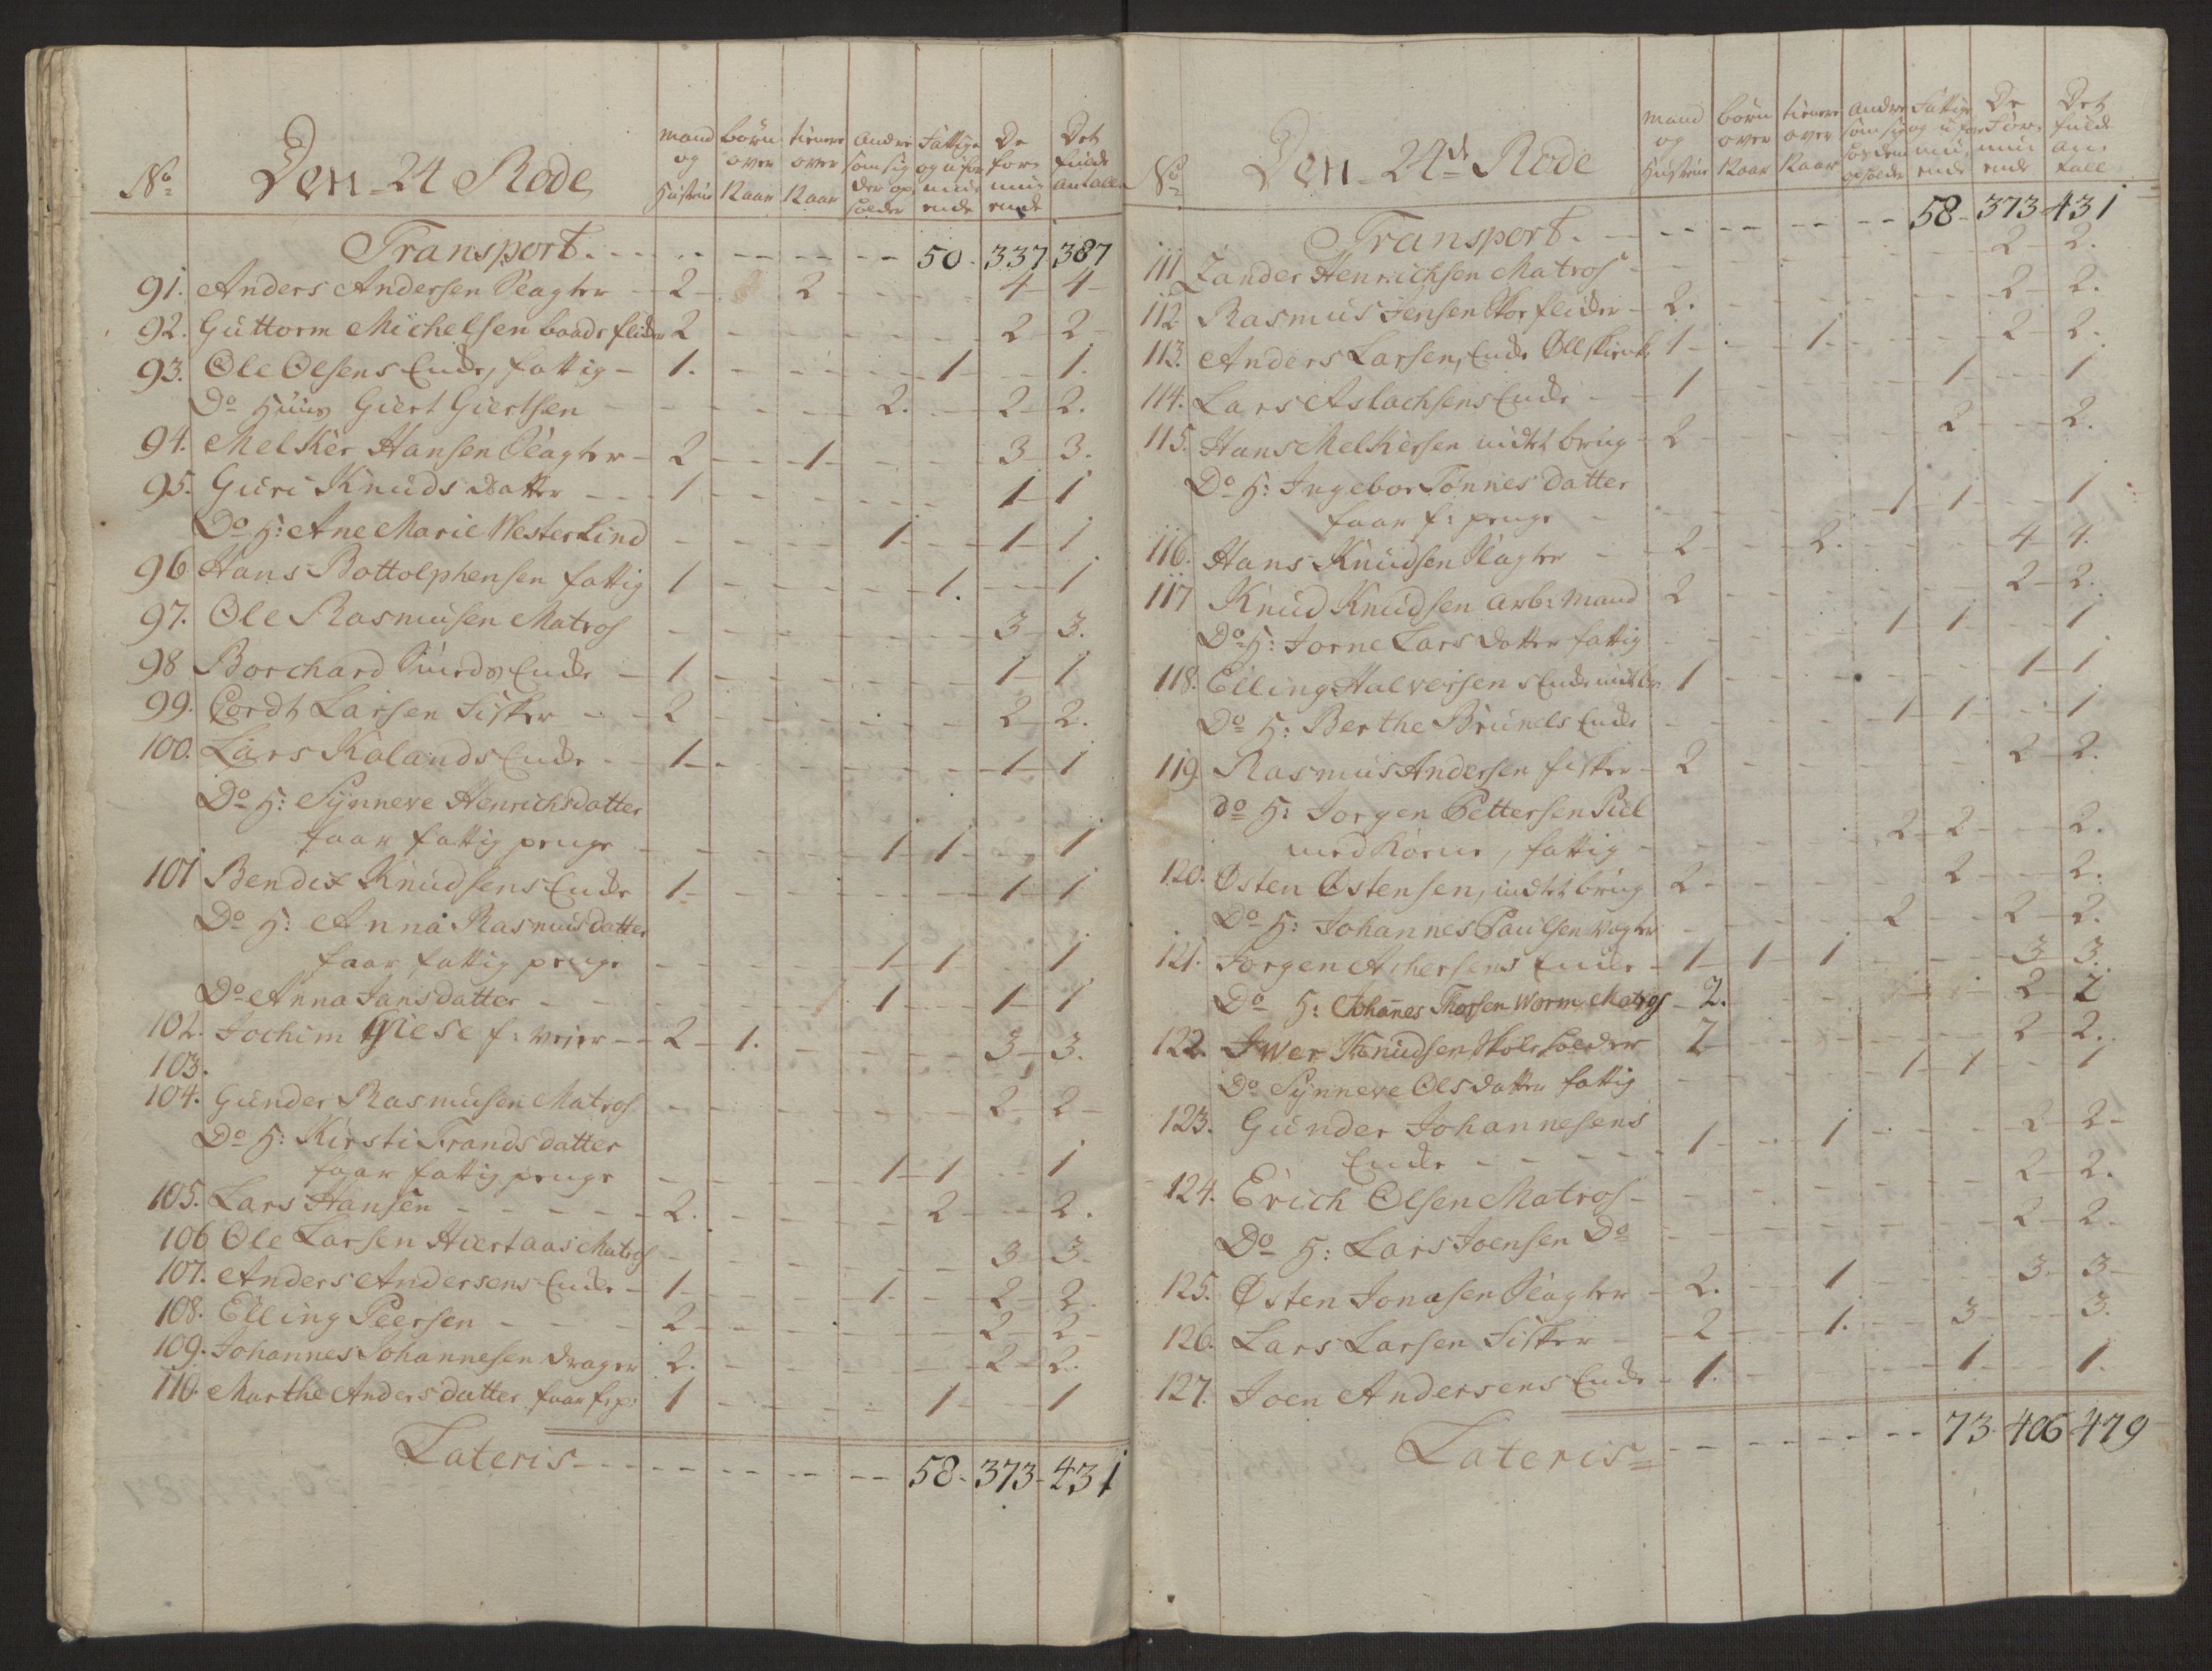 No Den 24 Rode mand og Hustrue børn over 12 aar tienere over 12 aar Andre som sig der op holder Fattige og ufor muende De for muende Det fulde antall
Transport 50 337 387
91. Anders Andersen Slagter 2 2 4 4
92. Guttorm Michelsen baads flider 2 2 2
93. Ole Olsens Enke, fattig 1. 1 1.
Do Huus Giert Giertsen 2. 2 2.
94. Melkier Hansen Slagter 2 1 3 3.
95. Guri Knuds datter 1 1 1
Do H: Ane Marie Westerlind 1 1 1
96 Hans Bottolphensen fattig 1 1. 1
97. Ole Rasmusen Matros 3 3.
98 Borchard Sueds Enke 1 1 1
99. Cordt Larsen Fisker 2 2 2.
100. Lars Kalands Enke 1 1 1
Do H: Synneve Henrichsdatter
faar fattig penge 1 1 1
101 Bendix Knudsens Enke 1 1 1
Do H: Anna Rasmusdatter
faar fattig penge 1 1 1
Do Anna Jansdatter 1 1 1
102. Jochim Giese f: veier 2 1. 3 3.
103.
104. Gunder Rasmusen Matros 2 2
Do H: Kirsti Frandsdatter
faar fattig penge 1 1 1
105. Lars Hansen 2. 2 2.
106 Ole Larsen Hiertaas Matros 3 3
107. Anders Andersens Enke 1 1 2 2.
108. Elling Peersen 2 2 2
109. Johannes Johannesen drager 2. 2 2.
110. Marthe Andersdatter faar f: p: 1 1 1
Lateris 58 373 431
No Den 24de Rode mand og Hustrue børn over 12 aar tienere over 12 aar Andre som sig der op holder Fattige og ufor muende De for muende Det fulde an tall
Transport 58 373 431
111 Zander Henrichsen Matros 2 2.
112 Rasmus Jensen Skoe flider 2. 2 2.
113. Anders Larsens Enke Øllskienk 1 1 2 2.
114. Lars Aslachsens Enke 1 1 1
115. Hans Melkiersen intet brug 2 2 2.
Do H: Ingebor Tønnes datter
faar f: penge 1 1 1
116. Hans Knudsen Slagter 2 2. 4 4.
117 Knud Knudsen arb: mand 2 2 2.
Do H: Jorne Lars datter fattig 1 1 1
118. Elling Halvorsens Enke intet br: 1 1 1
Do H: Berthe Brunels Enke 1 1 1
119 Rasmus Andersen fisker 2 2 2.
do H: Jorgen Pettersen Piil
med Kone, fattig 2 2 2.
120. Østen Østensen, intet brug 2 2 2.
Do H: Johannes Paulsen vægter 2 2 2.
121. Jorgen Achersens Enke 1 1 1 3 3.
Do H: Johanes Thorsen Worm Matros 2. 2 2
122. Iwer Knudsen Skole holder 2 2 2.
Do Synneve Ols datter fattig 1 1 1
123. Gunder Johannesens
Enke 1 1 2 2
124. Erich Olsen Matros 2 2.
Do H: Lars Joensen Do 2 2
125. Østen Jonasen Slagter 2. 1 3 3
126. Lars Larsen Fisker 2 1. 3 3.
127. Joen Andersens Enke 1. 1 1.
Lateris 73 406 479